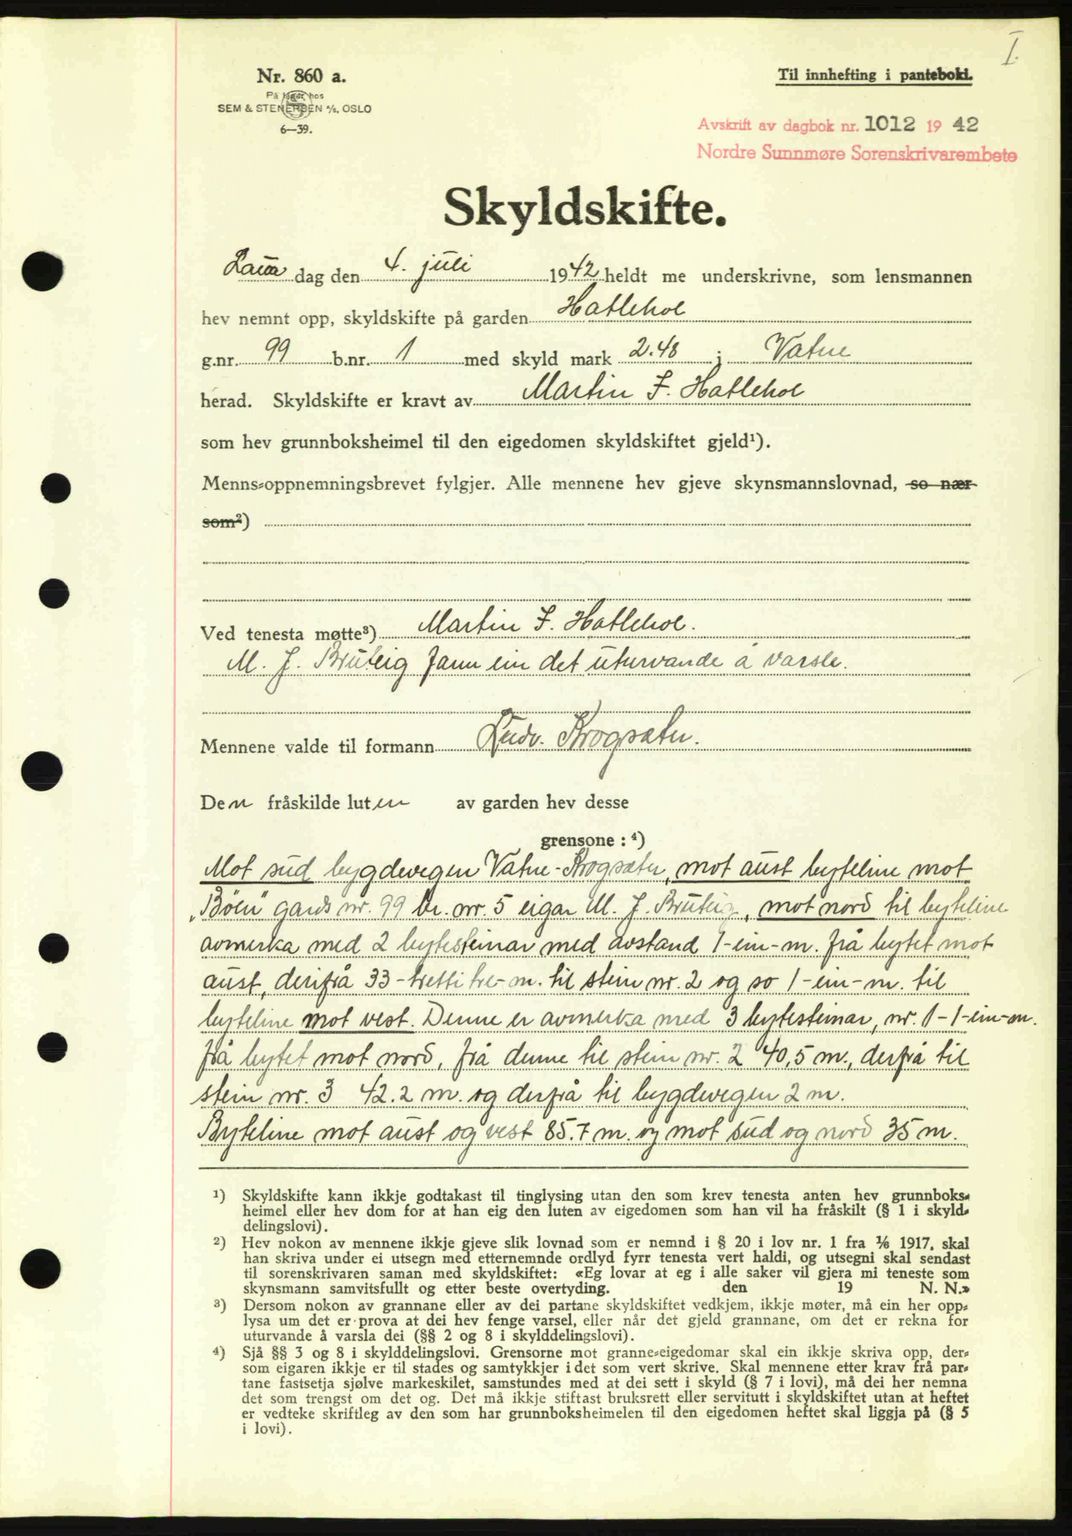 I.
Nr. 860 a.
På lager hos
SEM & STENERSEN A/S, OSLO
6—39.
Til innhefting i panteboki.
Avskrift av dagbok nr. 1012 19 42
Nordre Sunnmøre Sorenskrivarembete
Skyldskifte.
Laur dag den 4. juli 1942 heldt me underskrivne, som lensmannen
hev nemnt opp, skyldskifte på garden Hatlehol
g.nr. 99 b.nr. 1 med skyld mark 2.48 i Vatne
herad. Skyldskifte er kravt av Martin F. Hatlehol
som hev grunnboksheimel til den eigedomen skyldskiftet gjeld¹).
Menns-oppnemningsbrevet fylgjer. Alle mennene hev gjeve skynsmannslovnad, so nær
som²)
Ved tenesta møtte³) Martin F. Hatlehol.
M. J. Bruteig fann ein det uturvande å varsle.
Mennene valde til formann Ludv. Krogsæter.
Den fråskilde luten av garden hev desse
grensone : ⁴)
Mot sud bygdevegen Vatne-Krogsæter, mot aust byteline mot
„Böen" gards nr. 99 br. nr. 5 eigar M. J. Bruteig, mot nord til byteline
avmerka med 2 bytesteinar med avstand 1-ein-m. frå bytet mot
aust, derifrå 33-trettitre-m. til stein nr. 2 og so 1-ein-m. til
byteline mot vest. Denne er avmerka med 3 bytesteinar, nr. 1-1-ein-m.
frå bytet mot nord, frå denne til stein nr. 2 40,5 m., derfrå til
stein nr. 3 42.2 m. og derfrå til bygdevegen 2 m.
Byteline mot aust og vest 85.7 m. og mot sud og nord 35 m.
¹) Skyldskifte kann ikkje godtakast til tinglysing utan den som krev tenesta anten hev grunnboks-
heimel eller hev dom for at han eig den luten av eigedomen som han vil ha fråskilt (§ 1 i skyld-
delingslovi).
²) Hev nokon av mennene ikkje gjeve slik lovnad som er nemnd i § 20 i lov nr. 1 fra 1/6 1917, skal
han skriva under ei utsegn med etternemnde ordlyd fyrr tenesta vert haldi, og utsegni skal sendast
til sorenskrivaren saman med skyldskiftet: «Eg lovar at eg i alle saker vil gjera mi teneste som
skynsmann samvitsfullt og etter beste overtyding. den 19 N. N.»
³) Dersom nokon av grannane eller av dei partane skyldskiftet vedkjem, ikkje møter, må ein her opp-
lysa um det er prova at dei hev fenge varsel, eller når det gjeld grannane, om det er rekna for
uturvande å varsla dei (§§ 2 og 8 i skylddelingslovi).
⁴) Sjå §§ 3 og 8 i skylddelingslovi. Grensorne mot granne-eigedomar skal ein ikkje skriva opp, der-
som eigaren ikkje er til stades og samtykkjer i det som vert skrive. Skal mennene etter krav frå par-
tane fastsetja sjølve markeskilet, samstundes med at dei sett i skyld (§ 7 i lovi), må dei her nemna
det som trengst om det og. Det må ikkje stiftast bruksrett eller servitutt i skyldskiftet utan at heftet
er vedteke skriftleg av den som har grunnboksheimelen til den eigedomen heftet skal liggja på (§ 5
i lovi).